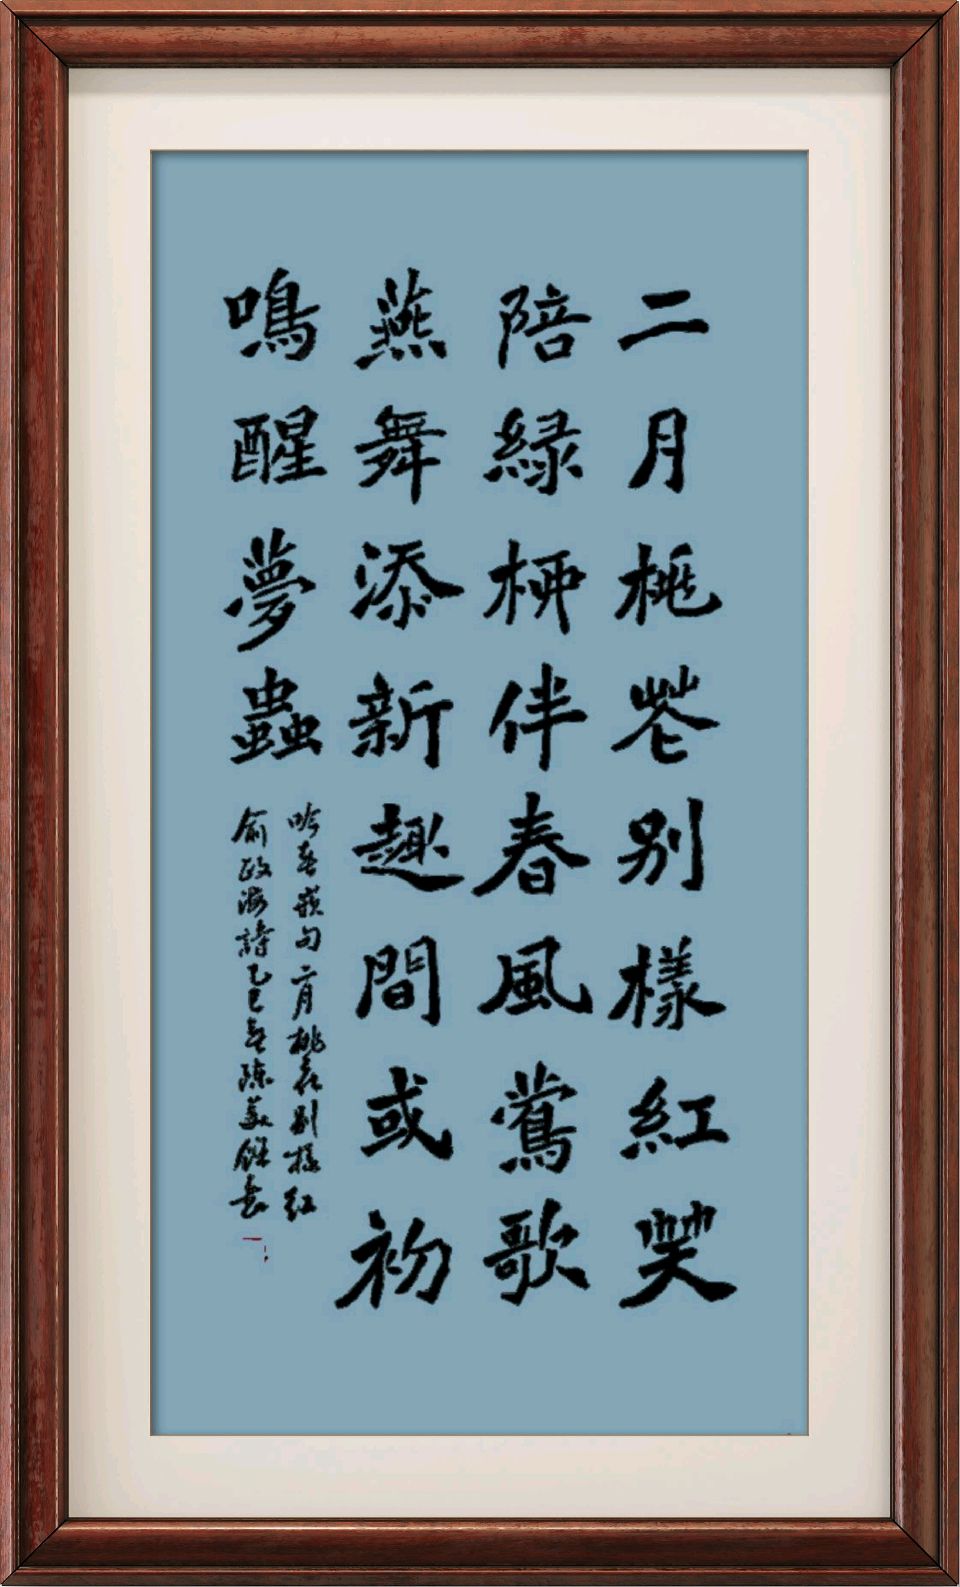 二月桃花别樣紅笑
陪緑柳伴春風鶯歌
燕舞添新趣間或初
鳴醒夢蟲
吟春嵌句二月桃花别樣红
俞政海詩乙巳春陳美傑書